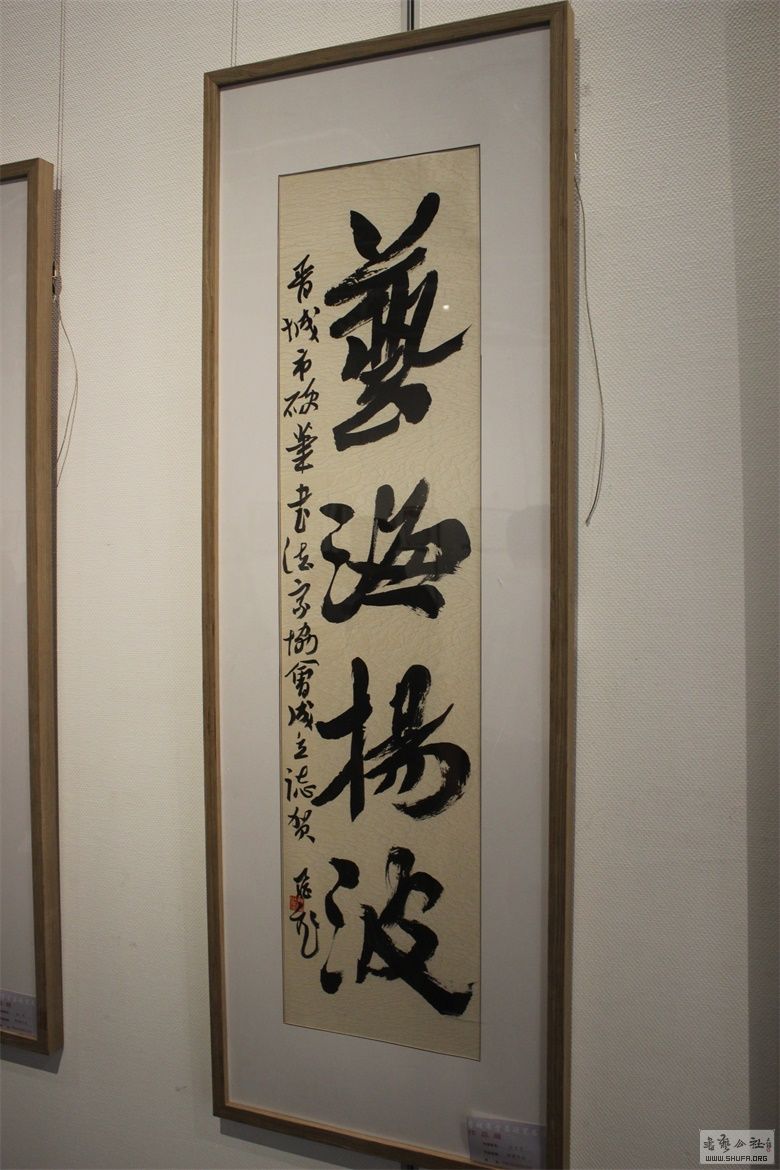 藝海揚波
晋城市硬筆書法家協會成立誌賀
書藝公社
WWW.SHUFA.ORG